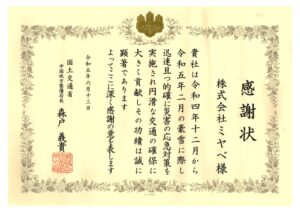 感謝状
株式会社ミヤベ様
貴社は令和四年十二月から
令和五年二月の豪雪に際し
迅速且つ的確に災害の応急対策を
実施され円滑な交通の確保に
大きく貢献しその功績は誠に
顕著であります
よってここに深く感謝の意を表します
令和五年六月十三日
国土交通省
中国地方整備局長
森戸義貴